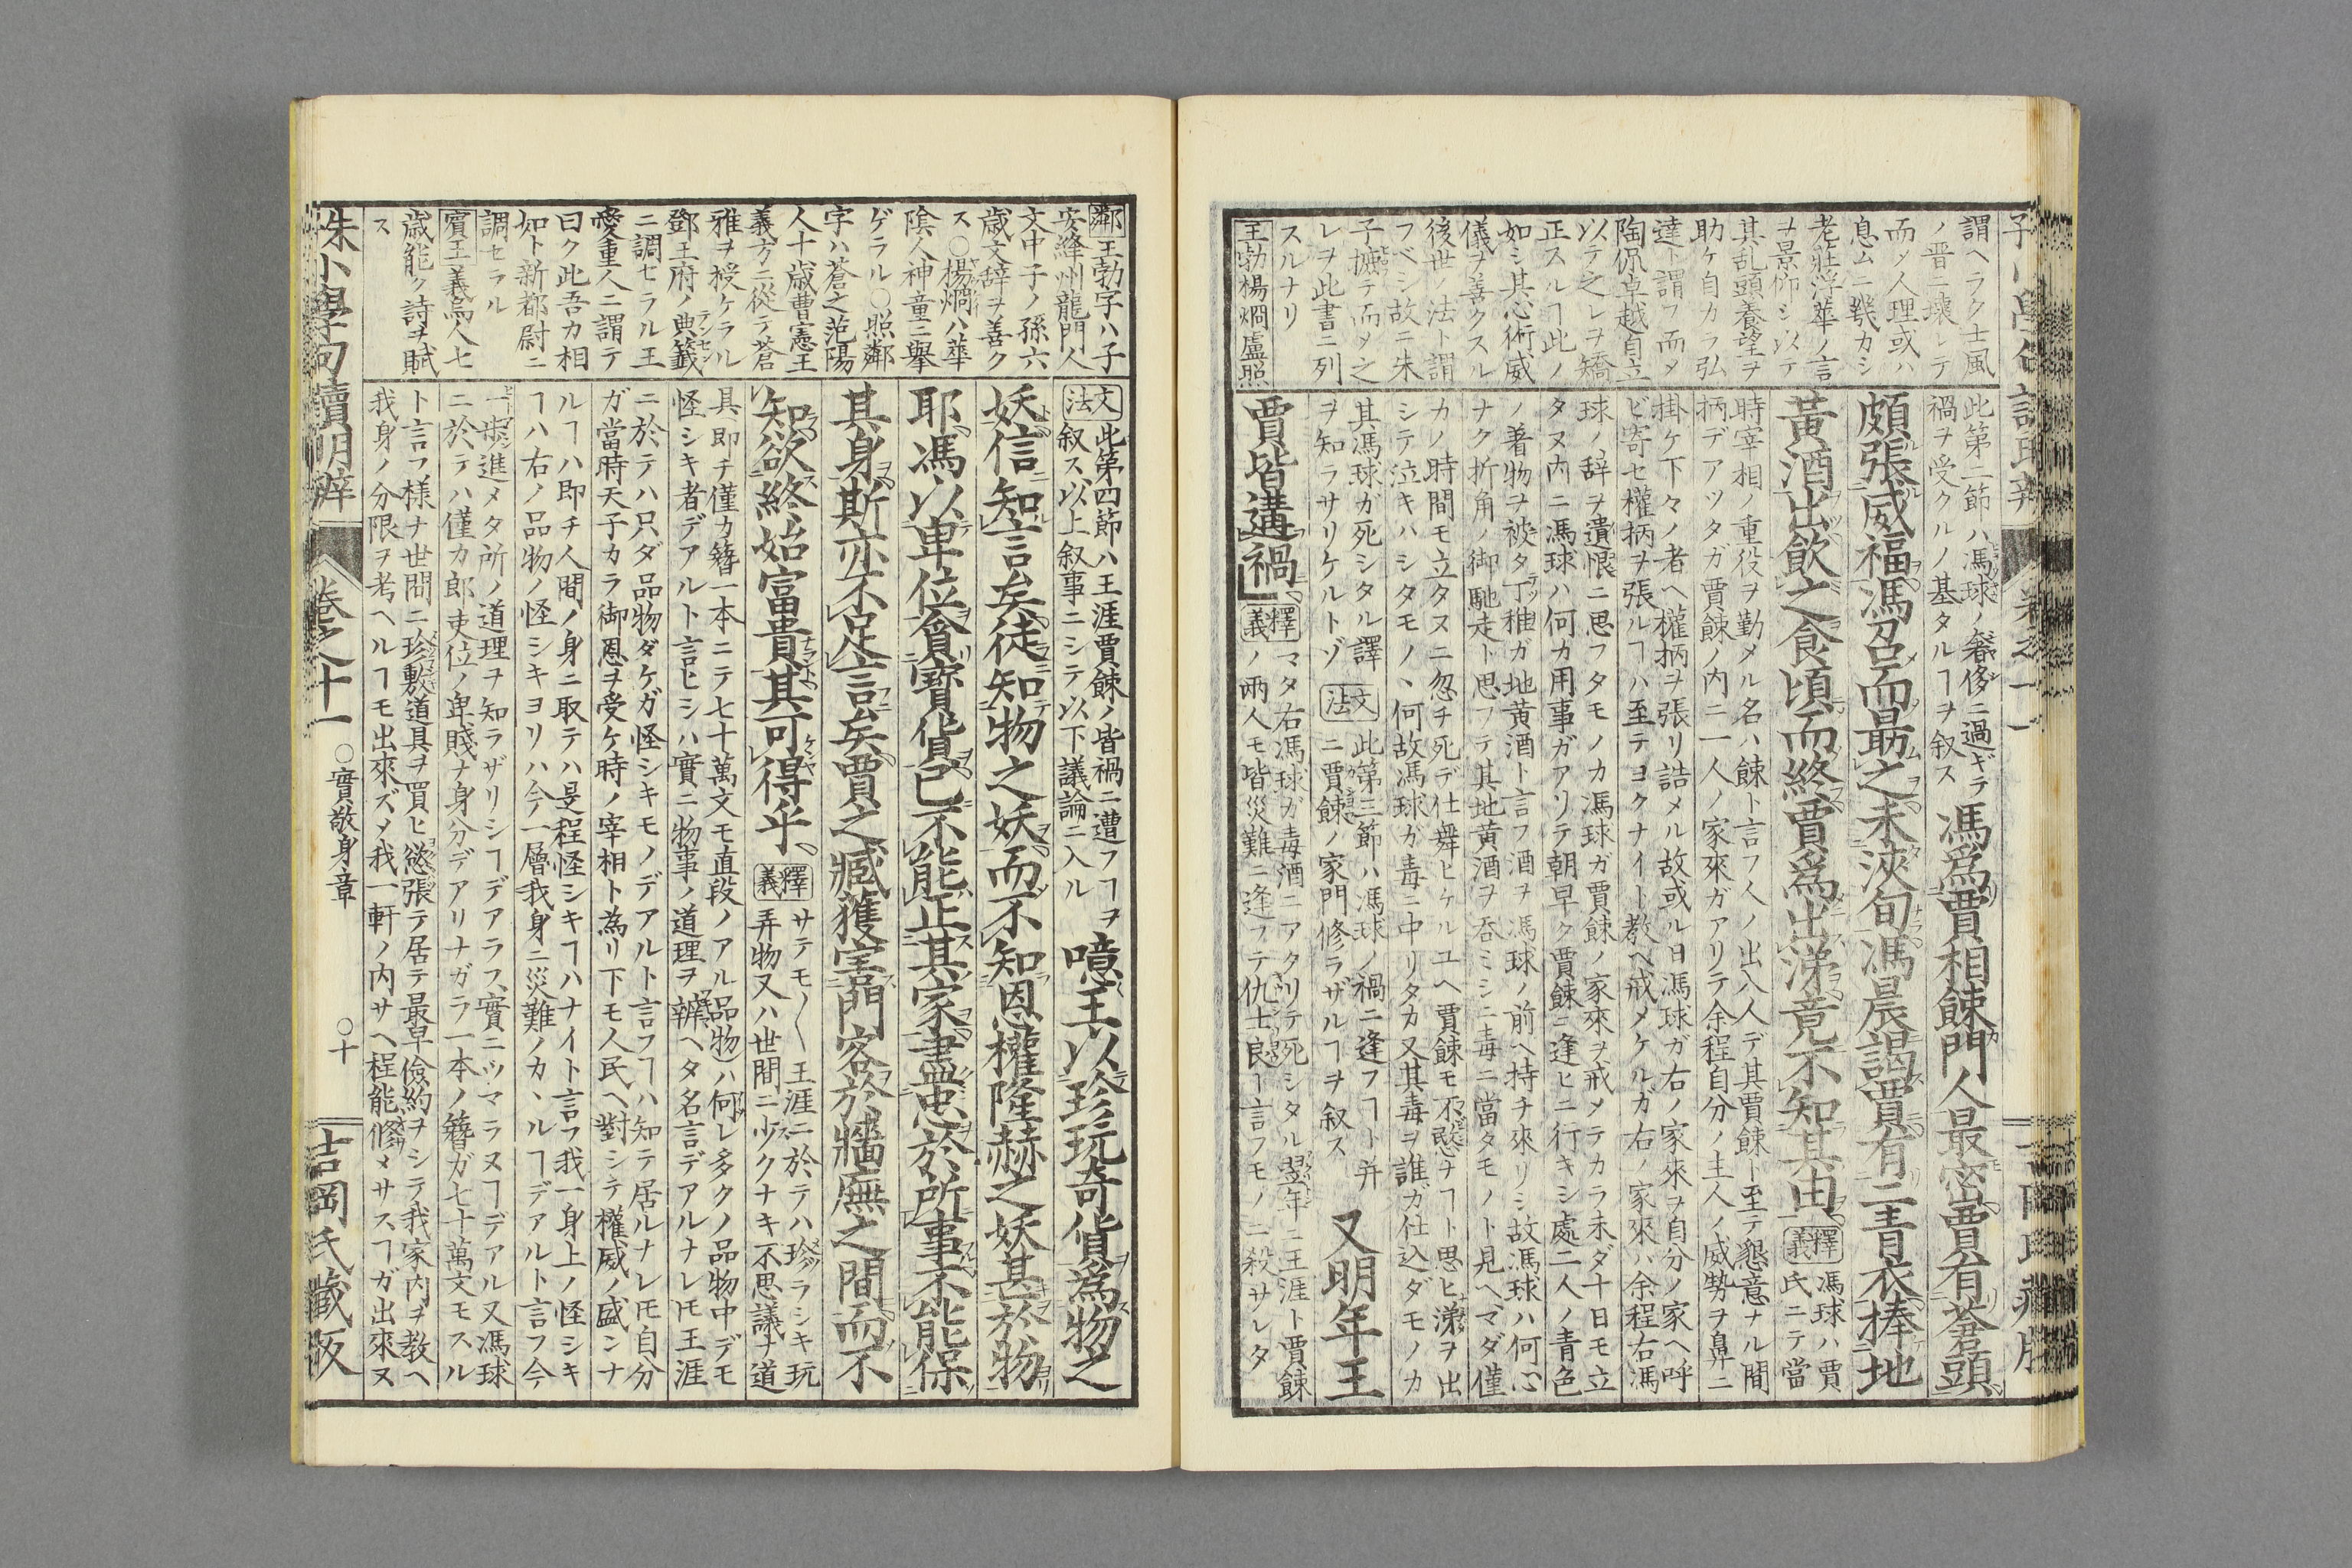 謂ヘラク士風
ノ晋ニ壊レテ
而メ人理或ハ
息ムニ幾カシ
老莊浮華ノ言
ヲ景仰シ以テ
其乱頭養望ヲ
助ケ自カラ弘
達ト謂フ而メ
陶侃卓越自立
以テ之レヲ矯
正スルヿ此ノ
如シ其心術威
儀ヲ善クスル
後世ノ法ト謂
フベシ故ニ朱
子摭テ而メ之
レヲ此書ニ列
スルナリ
王勃楊烱盧照
此第二節ハ馮球ノ奢侈ニ過ギテ
禍ヲ受クルノ基タルヿヲ叙ス
馮爲賈相餗門人最密賈有蒼頭
頗張威福馮召而勗之未浹旬馮晨謁賈有二青衣捧地
黃酒出飮之食頃而終賈爲出涕竟不知其由
釋義
馮球ハ賈
氏ニテ當
時宰相ノ重役ヲ勤メル名ハ餗ト言フ人ノ出入人デ其賈餗ト至テ懇意ナル間
柄デアツタガ賈餗ノ内ニ一人ノ家來ガアリテ余程自分ノ主人ノ威勢ヲ鼻ニ
掛ケ下々ノ者ヘ權柄ヲ張リ詰メル故或ル日馮球ガ右ノ家來ヲ自分ノ家ヘ呼
ビ寄セ權柄ヲ張ルヿハ至テヨクナイト教ヘ戒メケルガ右ノ家來ハ余程右馮
球ノ辞ヲ遺恨ニ思フタモノカ馮球ガ賈餗ノ家來ヲ戒メテカラ未ダ十日モ立
タヌ内ニ馮球ハ何カ用事ガアリテ朝早ク賈餗ニ逢ヒニ行キシ處二人ノ青色
ノ着物ヲ被タ丁稚ガ地黄酒ト言フ酒ヲ馮球ノ前ヘ持チ來リシ故馮球ハ何心
ナク折角ノ御馳走ト思フテ其地黄酒ヲ呑ミシニ毒ニ當タモノト見ヘマダ僅
カノ時間モ立タヌニ忽チ死デ仕舞ヒケルユヘ賈餗モ不愍ナヿト思ヒ涕ヲ出
シテ泣キハシタモノヽ何故馮球ガ毒ニ中リタカ又其毒ヲ誰ガ仕込ダモノカ
其馮球ガ死シタル譯
ヲ知ラサリケルトゾ
文法
此第三節ハ馮球ノ禍ニ逢フヿト并
ニ賈餗ノ家門修ラザルヿヲ叙ス
又明年王
賈皆遘禍
釋義
マタ右馮球ガ毒酒ニアタリテ死シタル翌年ニ王涯ト賈餗
ノ兩人モ皆災難ニ逢フテ仇士良ト言フモノニ殺サレタ
鄰王勃字ハ子
安絳州龍門人
文中子ノ孫六
歳文辞ヲ善ク
ス○楊烱ハ華
陰人神童ニ擧
ゲラル○照鄰
字ハ蒼之范陽
人十歳曹憲王
義方ニ從テ蒼
雅ヲ授ケラル
鄧王府ノ典籤
ニ調セラル王
愛重人ニ謂テ
曰ク此吾カ相
如ト新都尉ニ
調セラル
賓王義烏人七
歳能ク詩ヲ賦
ス
文法
此第四節ハ王涯賈餗ノ皆禍ニ遭フヿヲ
叙ス以上叙事ニシテ以下議論ニ入ル
噫王以珍玩奇貨爲物之
妖信知言矣徒知物之妖而不知恩權隆赫之妖甚於物
耶馮以卑位貪寶貨已不能正其家盡忠於所事不能保
其身斯亦不足言矣賈之臧獲害門客於牆廡之間而不
知欲終始富貴其可得乎
釋義
サテモ〱王涯ニ於テハ珍ラシキ玩
弄物又ハ世間ニ少クナキ不思議ナ道
具即チ僅カ簪一本ニテ七十萬文モ直段ノアル品物ハ何レ多クノ品物中デモ
怪シキ者デアルト言ヒシハ實ニ物事ノ道理ヲ辨ヘタ名言デアルナレ𪜈王涯
ニ於テハ只ダ品物ダケガ怪シキモノデアルト言フヿハ知テ居ルナレ𪜈自分
ガ當時天子カラ御恩ヲ受ケ時ノ宰相ト為リ下モ人民ヘ對シテ權威ノ盛ンナ
ルヿハ即チ人間ノ身ニ取テハ是程怪シキヿハナイト言フ我一身上ノ怪シキ
ヿハ右ノ品物ノ怪シキヨリハ今一層我身ニ災難ノカヽルヿデアルト言フ今
一歩進メタ所ノ道理ヲ知ラザリシヿデアラス實ニツマラヌヿデアル又馮球
ニ於テハ僅カ郎吏位ノ卑賤ナ身分デアリナガラ一本ノ簪ガ七十萬文モスル
ト言フ様ナ世間ニ珍敷道具ヲ買ヒ慾張テ居テ最早儉約ヲシテ我家内ヲ教ヘ
我身ノ分限ヲ考ヘルヿモ出來ズメ我一軒ノ内サヘ程能修メサスヿガ出來ヌ
朱小學句讀明辨
卷之十一
○實敬身章
○十
吉岡氏藏版